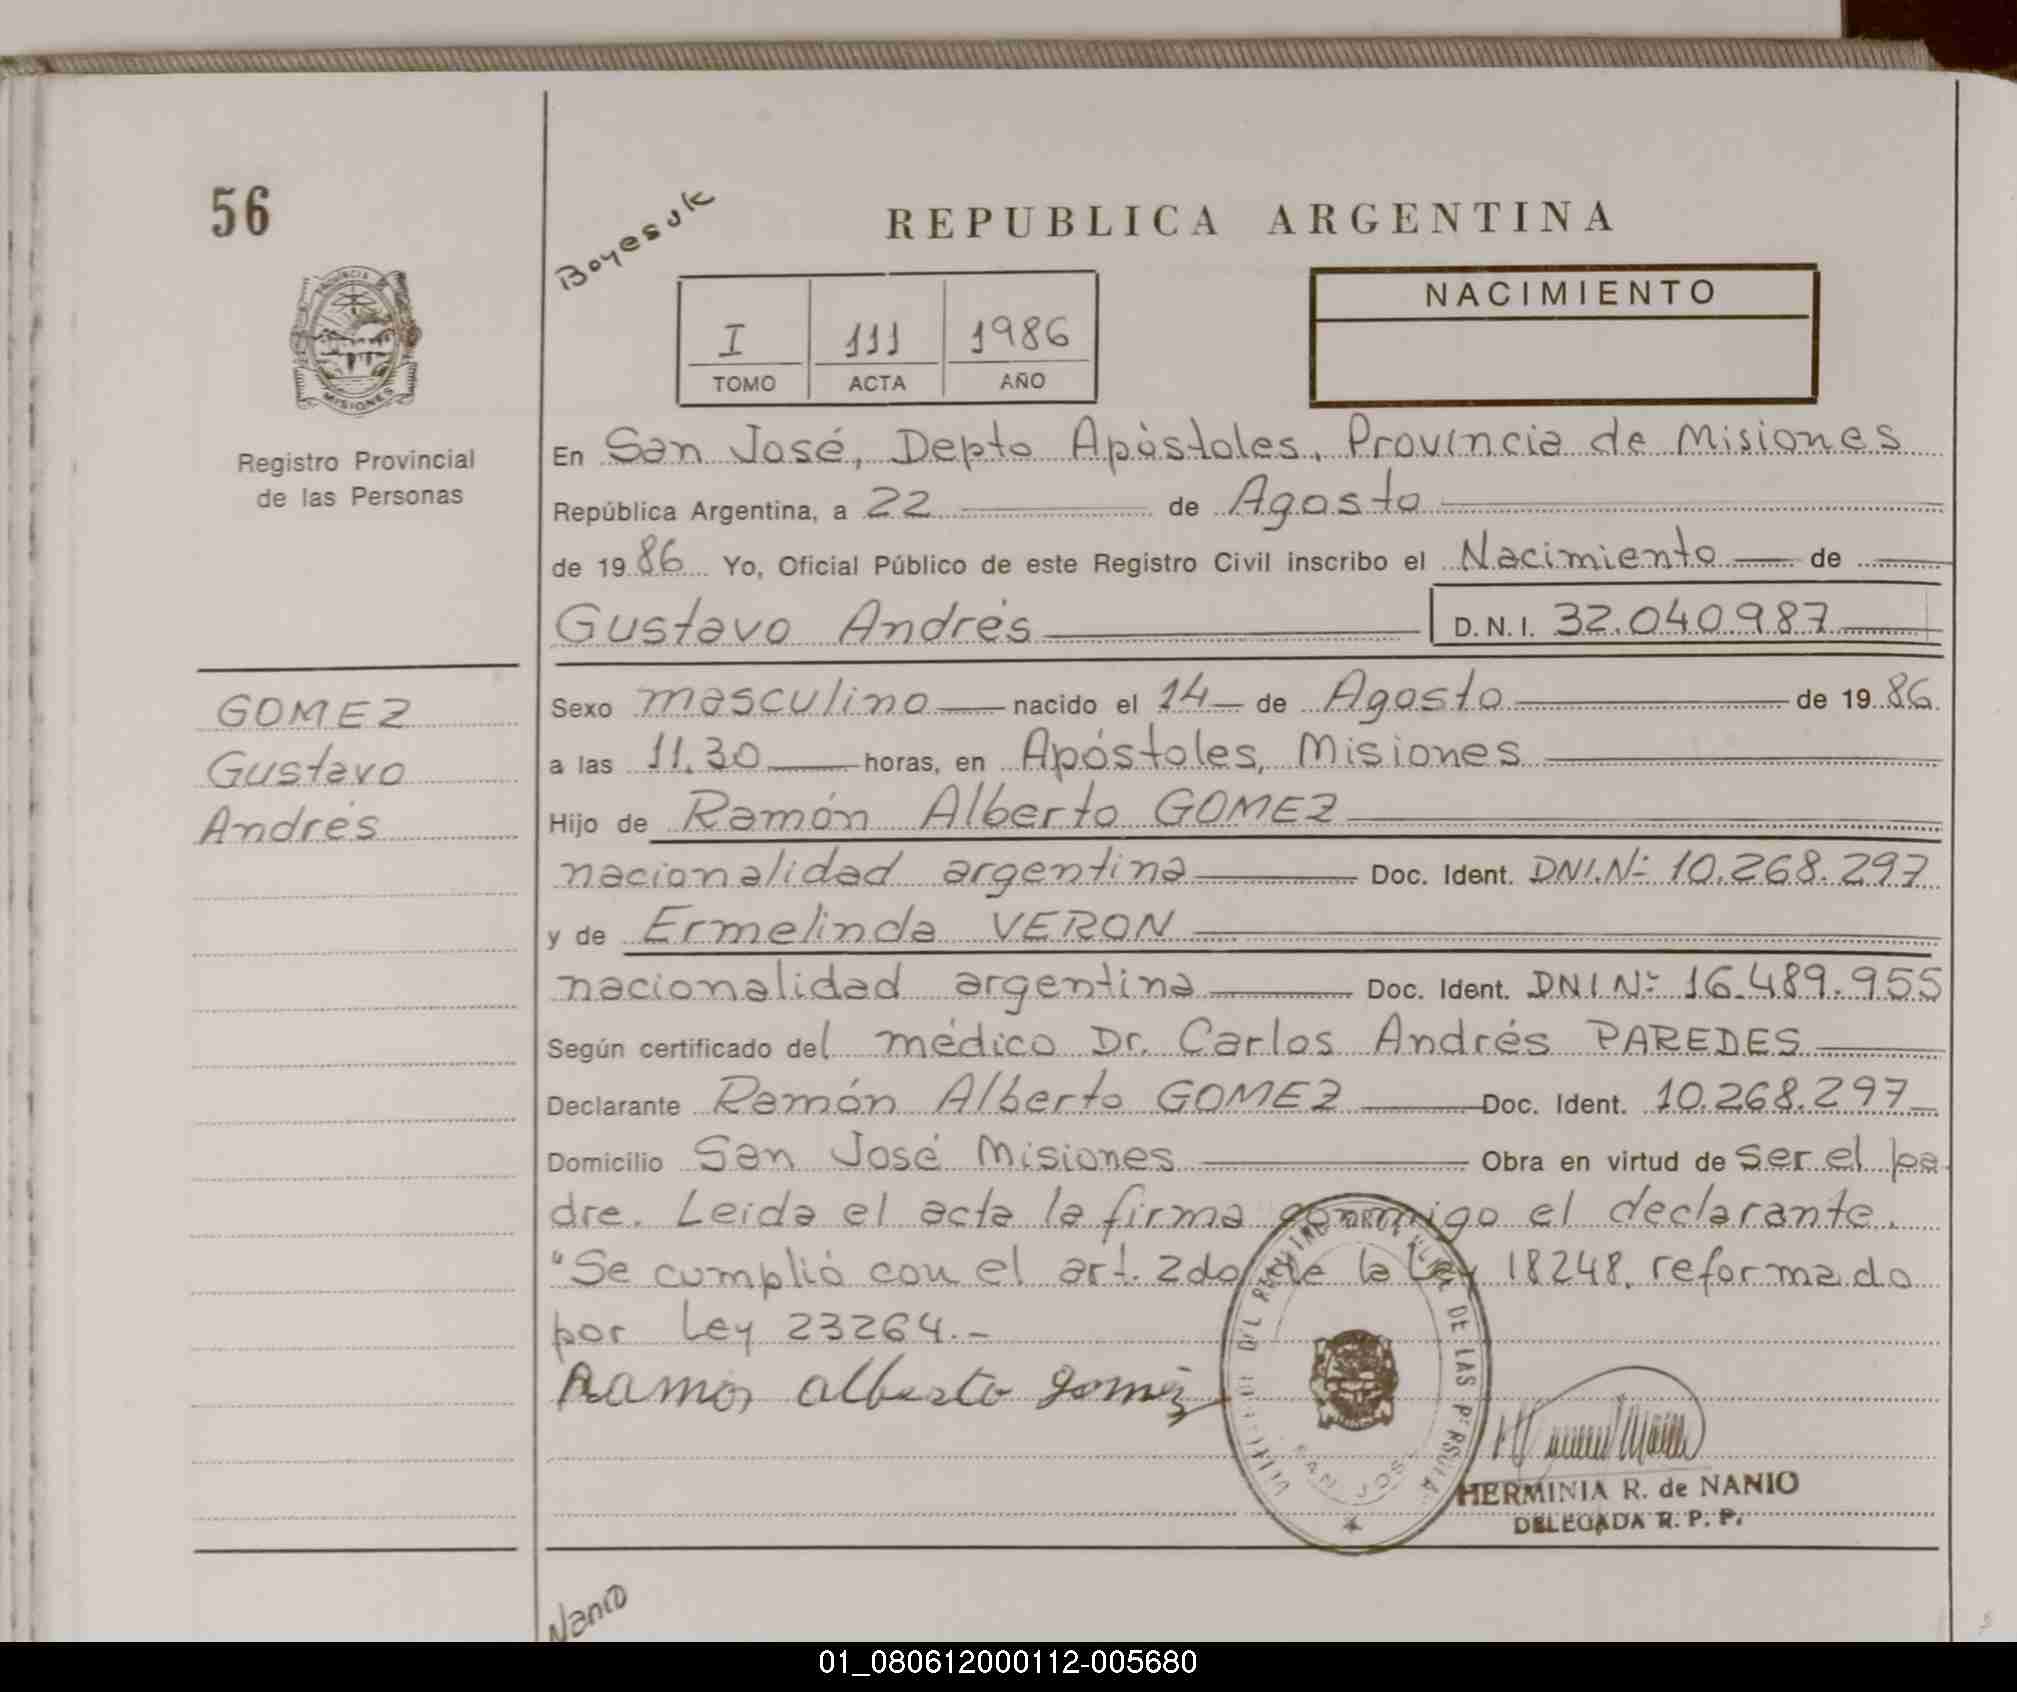 56
Boyesuk
REPUBLICA ARGENTINA
PROVINCIA DE
MISIONES
Registro Provincial
de las Personas
I 111 1986
TOMO ACTA AÑO
NACIMIENTO
En San José, Depto Apóstoles, Provincia de Misiones
República Argentina, a 22 de Agosto
de 1986 Yo, Oficial Público de este Registro Civil inscribo el Nacimiento de
Gustavo Andrés D.N.I. 32.040.987
GOMEZ
Gustavo
Andrés
Sexo masculino nacido el 14 de Agosto de 1986
a las 11.30 horas, en Apóstoles, Misiones
Hijo de Ramón Alberto GOMEZ
nacionalidad argentina Doc. Ident. DNI.Nº 10.268.297
y de Ermelinda VERON
nacionalidad argentina Doc. Ident. DNI Nº 16.489.955
Según certificado del médico Dr. Carlos Andrés PAREDES
Declarante Ramón Alberto GOMEZ Doc. Ident. 10.268.297
Domicilio San José Misiones Obra en virtud de ser el pa
dre. Leida el acta la firma conmigo el declarante.
"Se cumplió con el art. 2do de la Ley 18248. reformado
por Ley 23264.-
Ramon alberto gomez
DE LAS
SAN JOSE
HERMINIA R. de NANIO
DELEGADA R. P. P.
Nanio
01_080612000112-005680